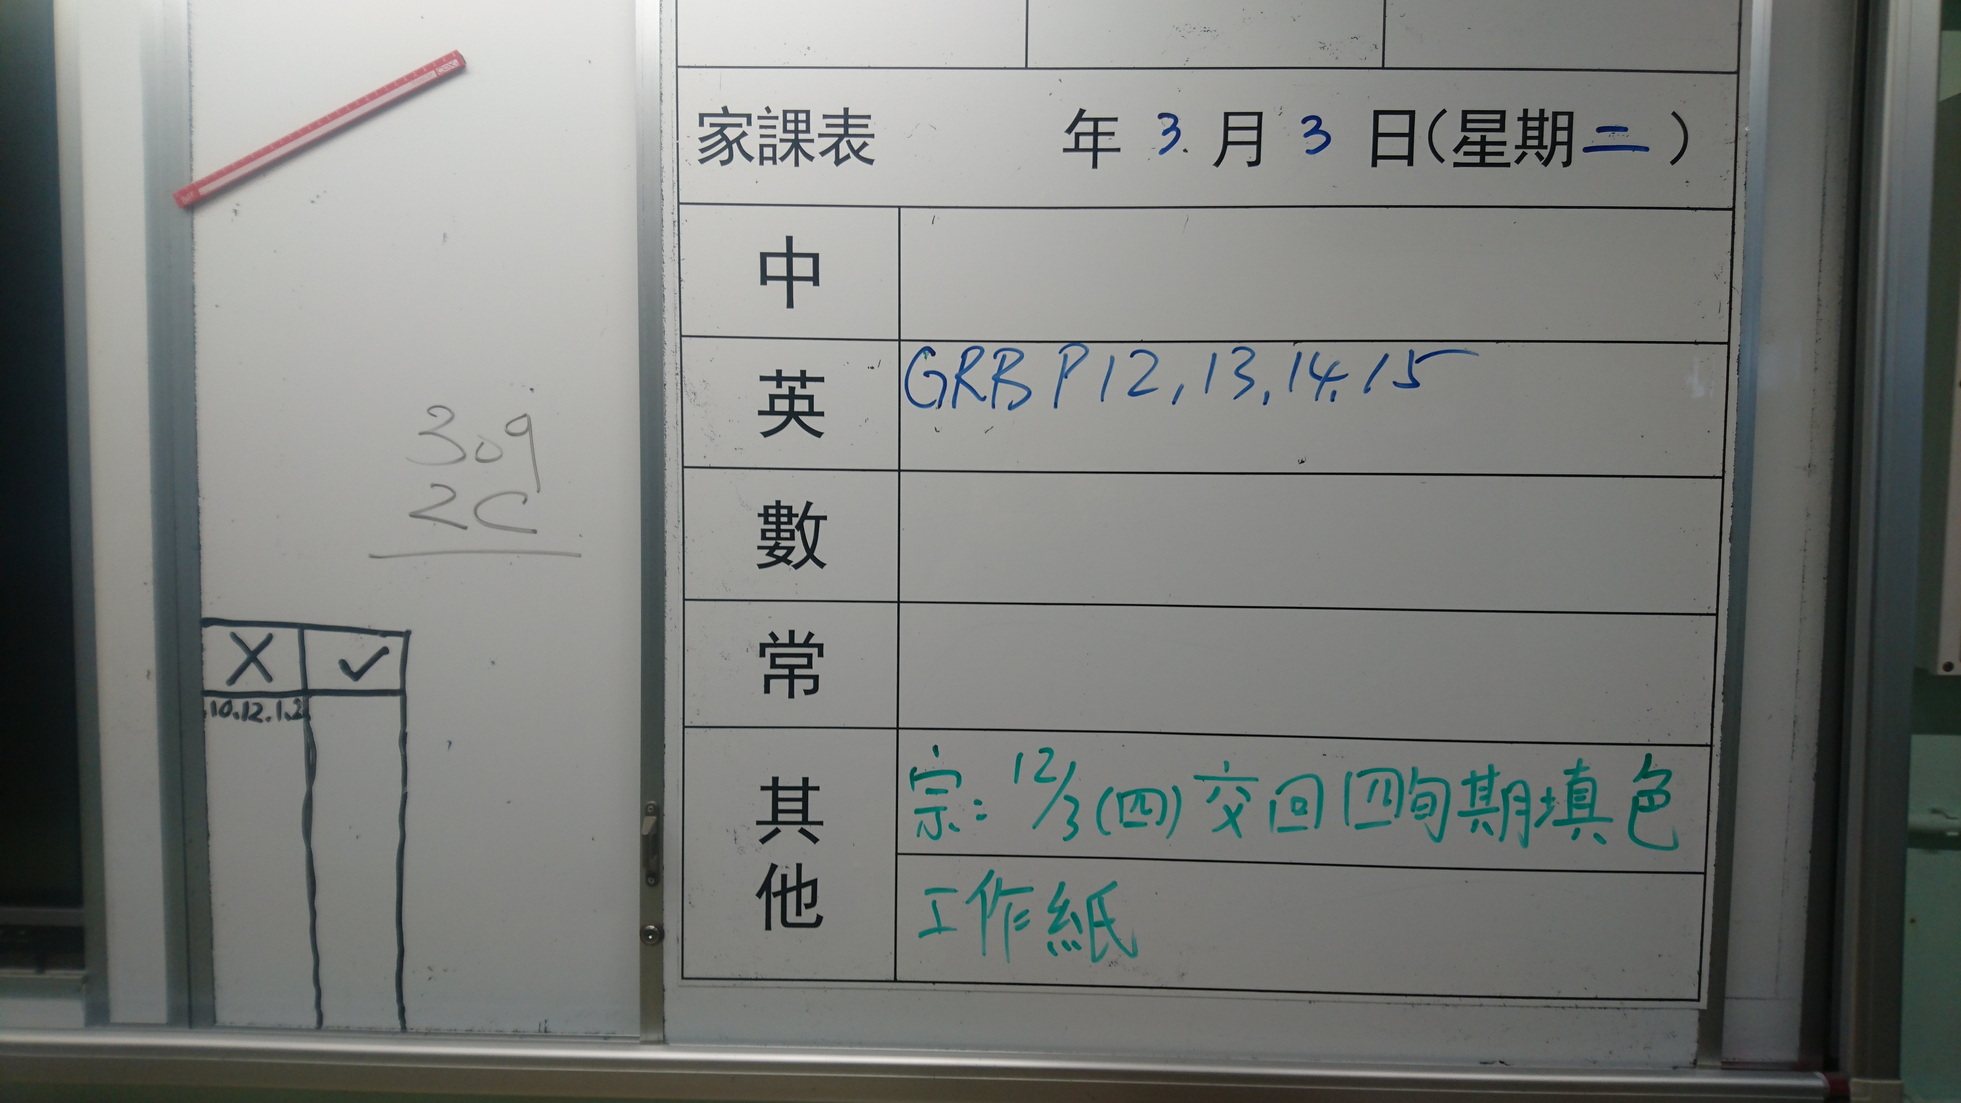 309
2C
X ✓
10.12.1.2
家課表 年 3 月 3 日(星期二)
中
英 GRB P12,13,14,15
數
常
其他 宗: 12/3(四)交回四旬期填色
工作紙